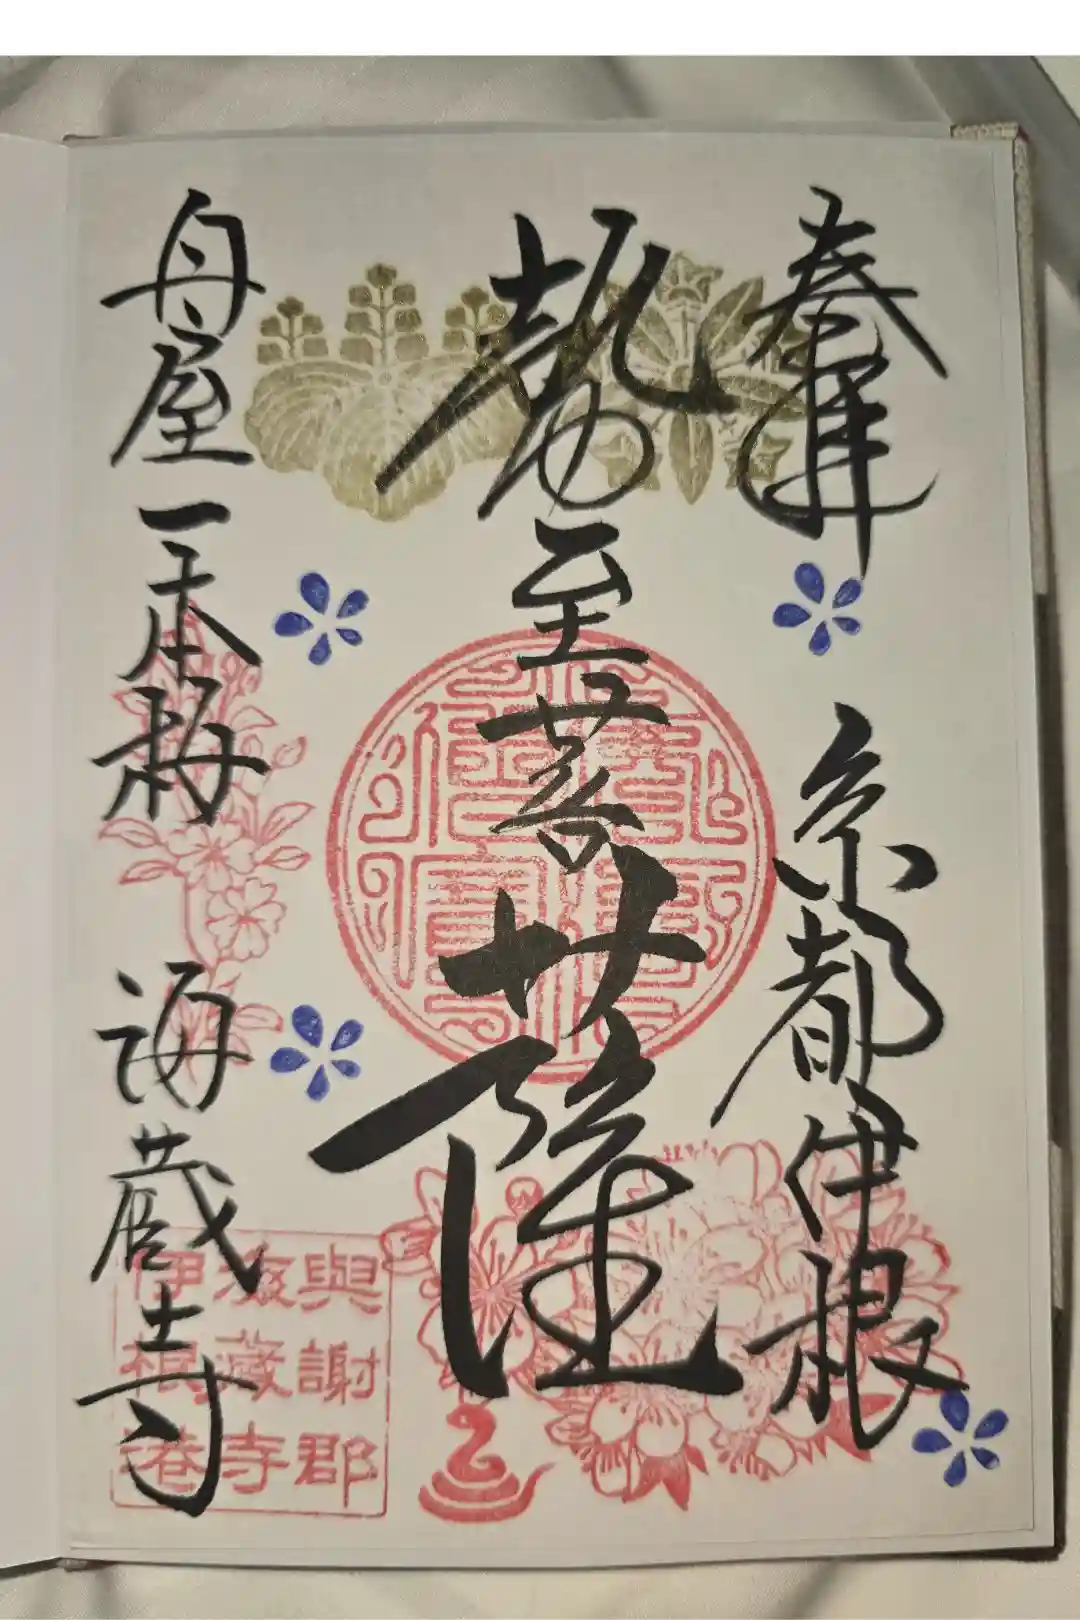 奉拝 京都伊根
勢至菩薩
舟屋 一本梅 海蔵寺
與謝郡
海藏寺
伊根港